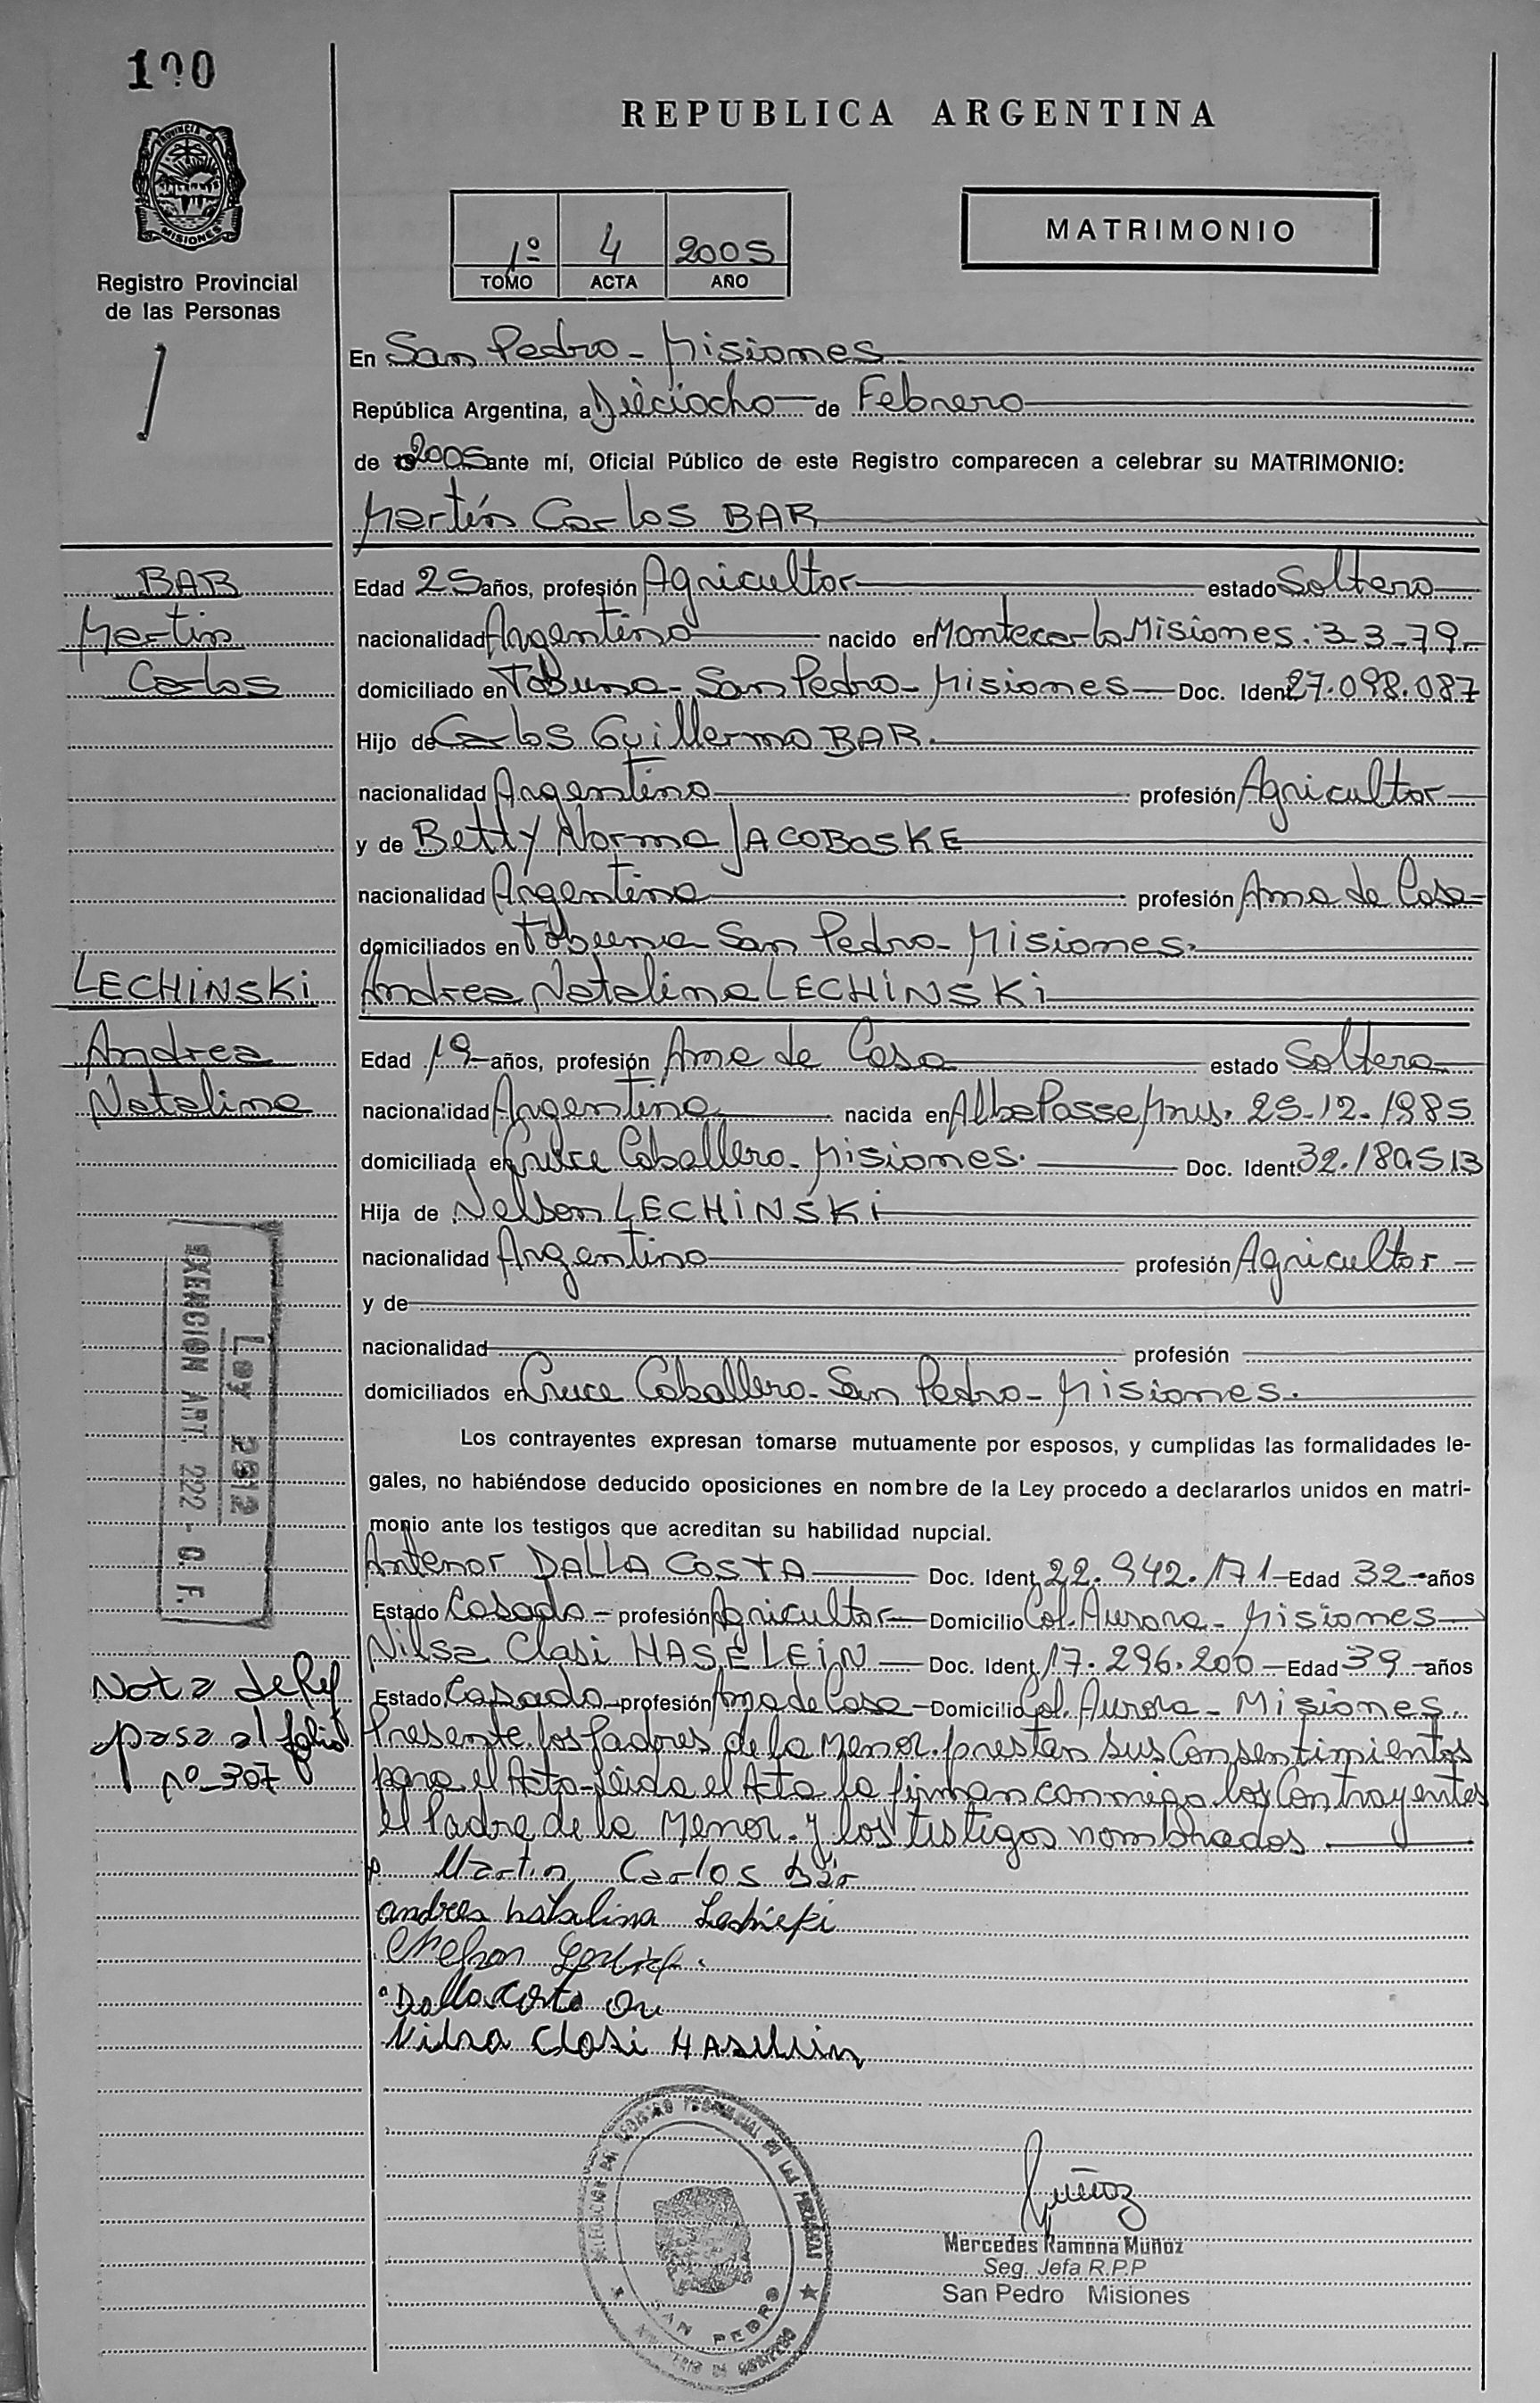 100
PROVINCIA D
MISIONES
Registro Provincial
de las Personas
REPUBLICA ARGENTINA
1º 4 2005
TOMO ACTA AÑO
MATRIMONIO
En San Pedro - Misiones
República Argentina, a Dieciocho de Febrero
de 2005 ante mí, Oficial Público de este Registro comparecen a celebrar su MATRIMONIO:
Martín Carlos BAR
BAR
Martin
Carlos
Edad 25 años, profesión Agricultor estado Soltero
nacionalidad Argentino nacido en Montecarlo Misiones. 3-3-79.-
domiciliado en Tobuna - San Pedro - Misiones - Doc. Ident. 27.098.087
Hijo de Carlos Guillermo BAR.
nacionalidad Argentino profesión Agricultor
y de Betty Norma JACOBOSKE
nacionalidad Argentina profesión Ama de Casa
domiciliados en Tobuna San Pedro - Misiones.
LECHINSKI
Andrea
Natalina
Andrea Natalina LECHINSKI
Edad 19 años, profesión Ama de Casa estado Soltera
nacionalidad Argentina nacida en Alba Posse Mnes. 25-12-1985
domiciliada en Cruce Caballero - Misiones. Doc. Ident. 32.180.513
Hija de Nelson LECHINSKI
nacionalidad Argentino profesión Agricultor
y de
nacionalidad profesión
domiciliados en Cruce Caballero - San Pedro - Misiones.
Ley 2812
EXENCION ART. 222 - C. F.
Los contrayentes expresan tomarse mutuamente por esposos, y cumplidas las formalidades le-
gales, no habiéndose deducido oposiciones en nombre de la Ley procedo a declararlos unidos en matri-
monio ante los testigos que acreditan su habilidad nupcial.
Antenor DALLA COSTA Doc. Ident. 22.942.171 - Edad 32 - años
Estado Casado - profesión Agricultor - Domicilio Col. Aurora - Misiones
Nilsa Clasi HASELEIN - Doc. Ident. 17.296.200 - Edad 39 - años
Estado Casado - profesión Ama de Casa - Domicilio Col. Aurora - Misiones.
Nota de Ref
pasa al folio
nº 307
Presente los Padres de la Menor. prestan sus Consentimientos
para el Acto - Leida el Acta la firman conmigo los Contrayentes
el Padre de la Menor. y los testigos nombrados
Martin Carlos Bär
andrea Natalina
Dalla Costa
Nilsa Clasi Haselein
DELEGACION DEL REGISTRO PROVINCIAL DE LAS PERSONAS
SAN PEDRO
MINISTERIO DE GOBIERNO
Muñoz
Mercedes Ramona Muñoz
Seg. Jefa R.P.P
San Pedro Misiones